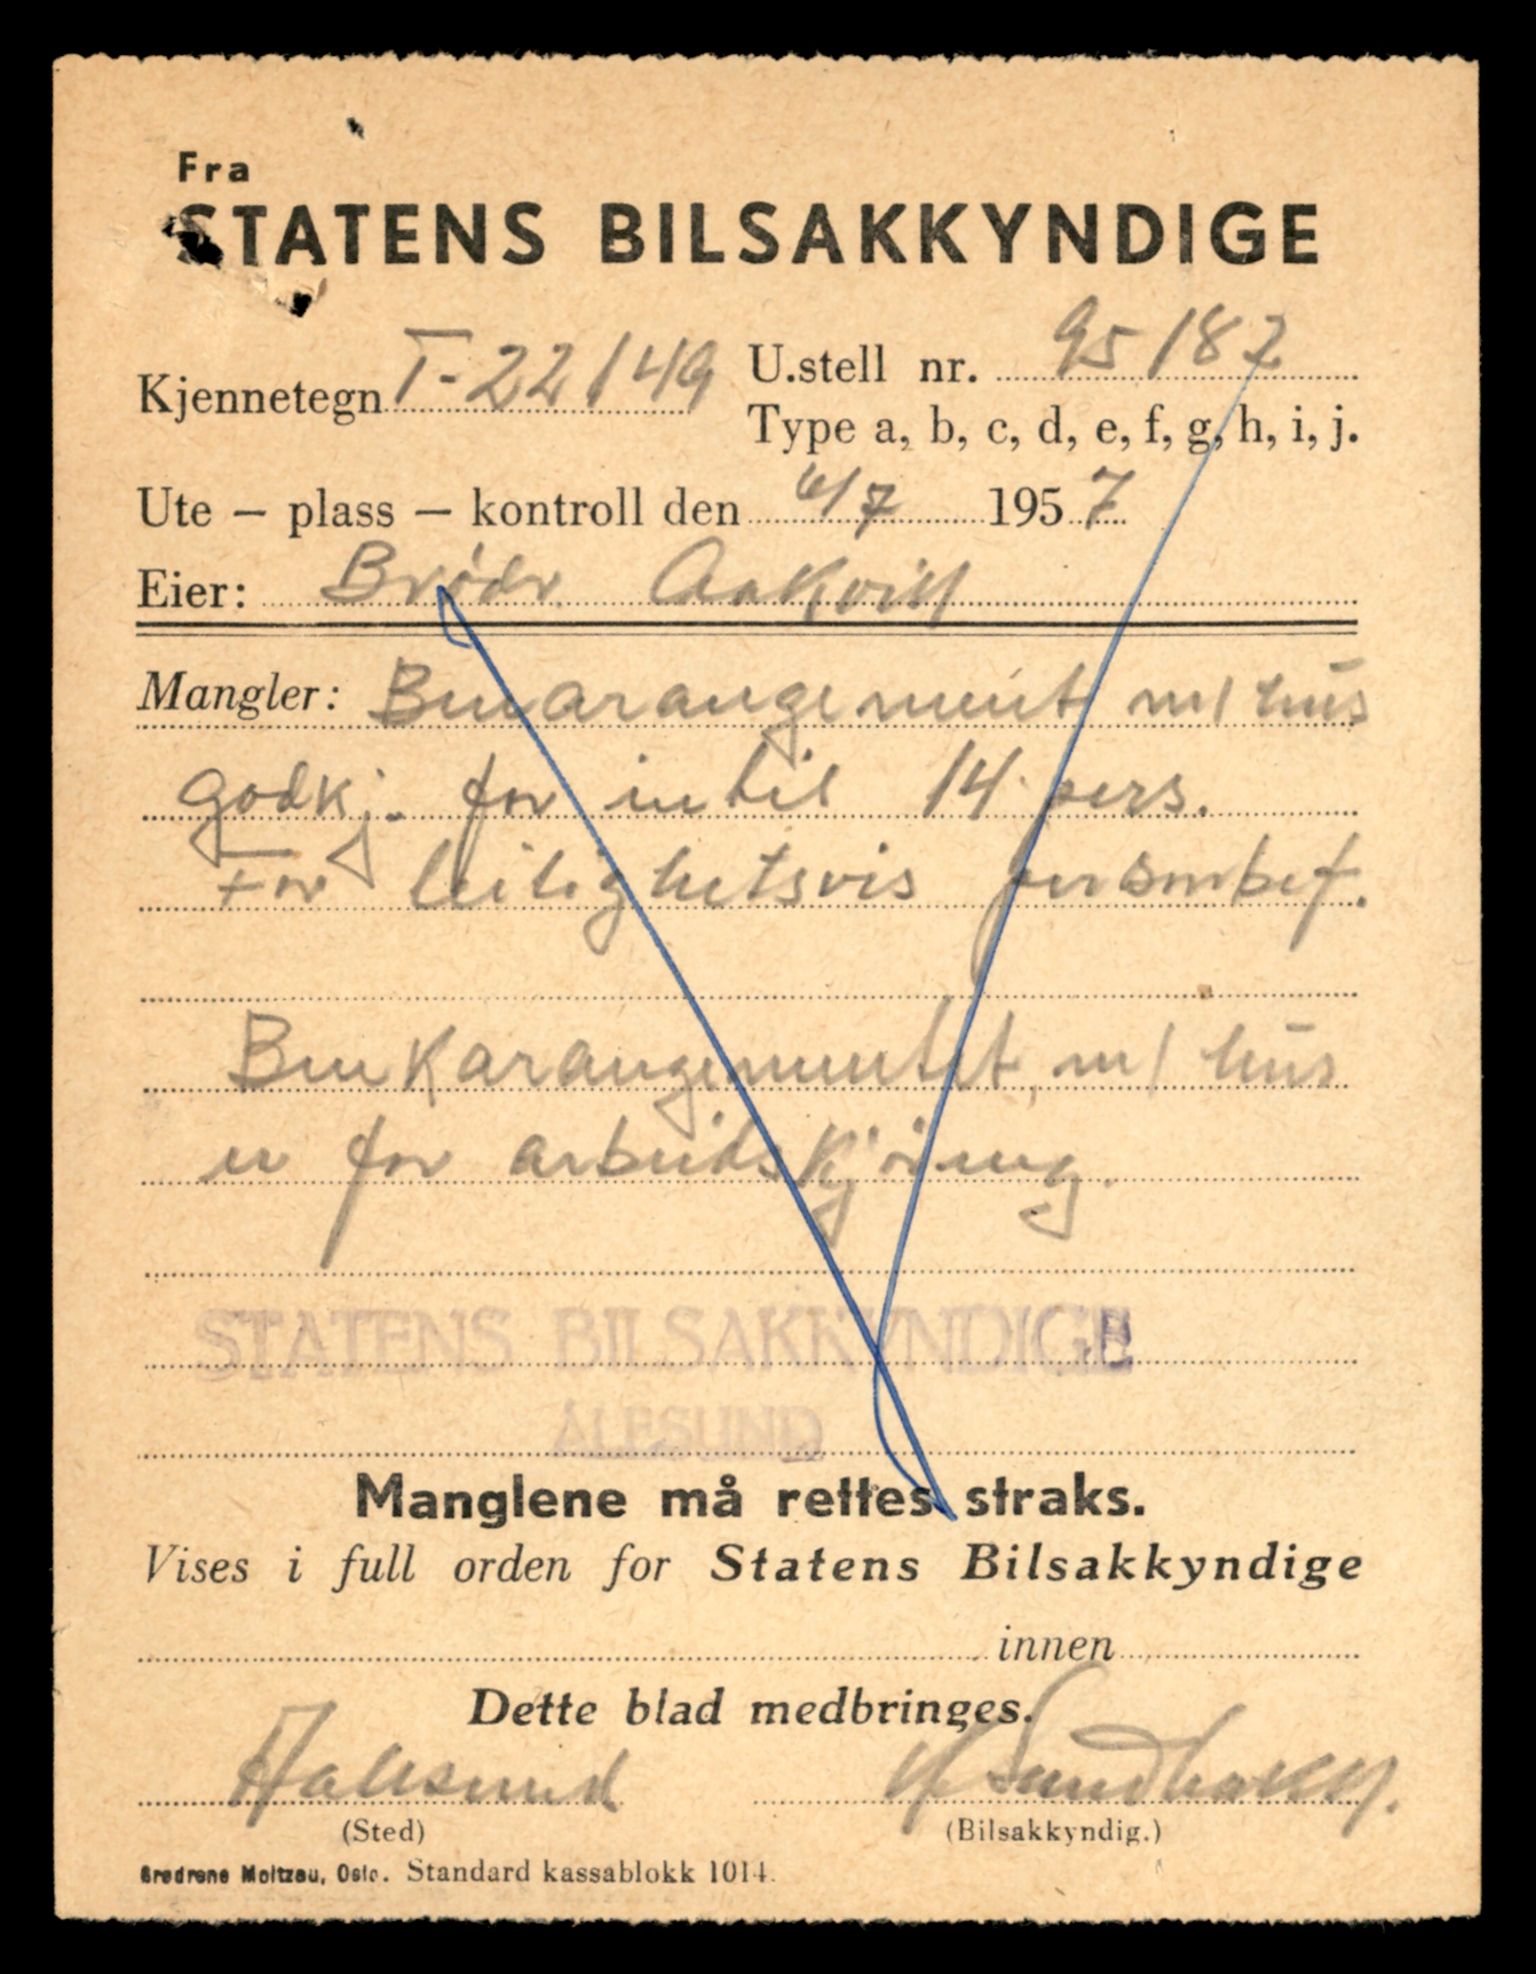 Fra
STATENS BILSAKKYNDIGE
Kjennetegn T-22149 U.stell nr. 95182
Type a, b, c, d, e, f, g, h, i, j.
Ute – plass – kontroll den 4/7 1957
Eier: Brødr Aakvik
Mangler: Benarangement m/ hus
godkj. for intil 14 pers.
For leilighetsvis personbef.
Benkarangementet m/ hus
er for arbeidskjøring.
STATENS BILSAKKYNDIGE
ÅLESUND
Manglene må rettes straks.
Vises i full orden for Statens Bilsakkyndige
innen
Dette blad medbringes.
Aalesund
(Sted) (Bilsakkyndig.)
Brødrene Moltzau, Oslo. Standard kassablokk 1014.